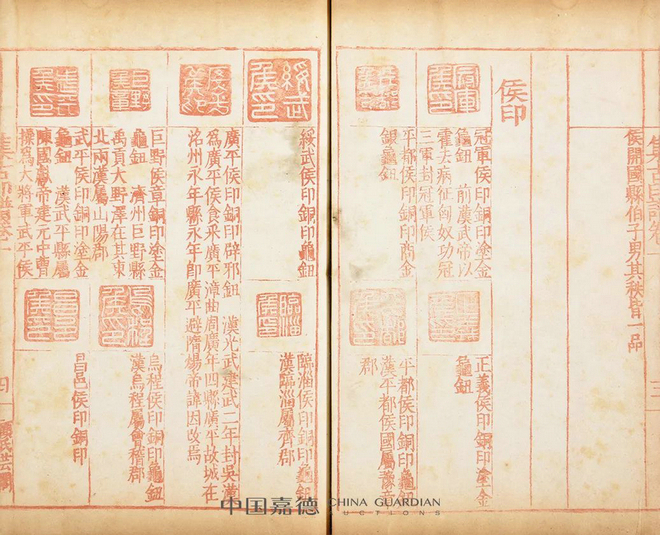 集古印譜卷一
三
侯開國縣伯子男其秩皆一品
侯印
冠軍侯印銅印塗金
龜鈕 前漢武帝以
霍去病征匈奴功冠
三軍封冠軍侯
正義侯印銅印塗金
龜鈕
平都侯印銅印商金
銀龜鈕
平都侯印銅印龜
漢平都侯國屬豫
郡
綏武侯印
綏武侯印銅印龜鈕
臨淄侯印
臨淄侯印銅印龜鈕
漢臨淄屬齊郡
廣平侯印銅印辟邪鈕 漢光武建武二年封吳漢
為廣平侯食采廣平漳曲周廣年四縣廣平故城在
洺州永年縣永年即廣平避隋煬帝諱因改焉
巨野侯章
巨野侯章銅印塗金
龜鈕 濟州巨野縣
禹貢大野澤在其東
北兩漢屬山陽郡
烏程侯印
烏程侯印銅印龜鈕
漢烏程屬會稽郡
武平侯印
武平侯印銅印塗金
龜鈕 漢武平縣屬
陳國獻帝建元中曹
操為大將軍武平侯
昌邑侯印銅印
集古印譜卷一
四
顧氏芸閣
中国嘉德 CHINA GUARDIAN
AUCTIONS